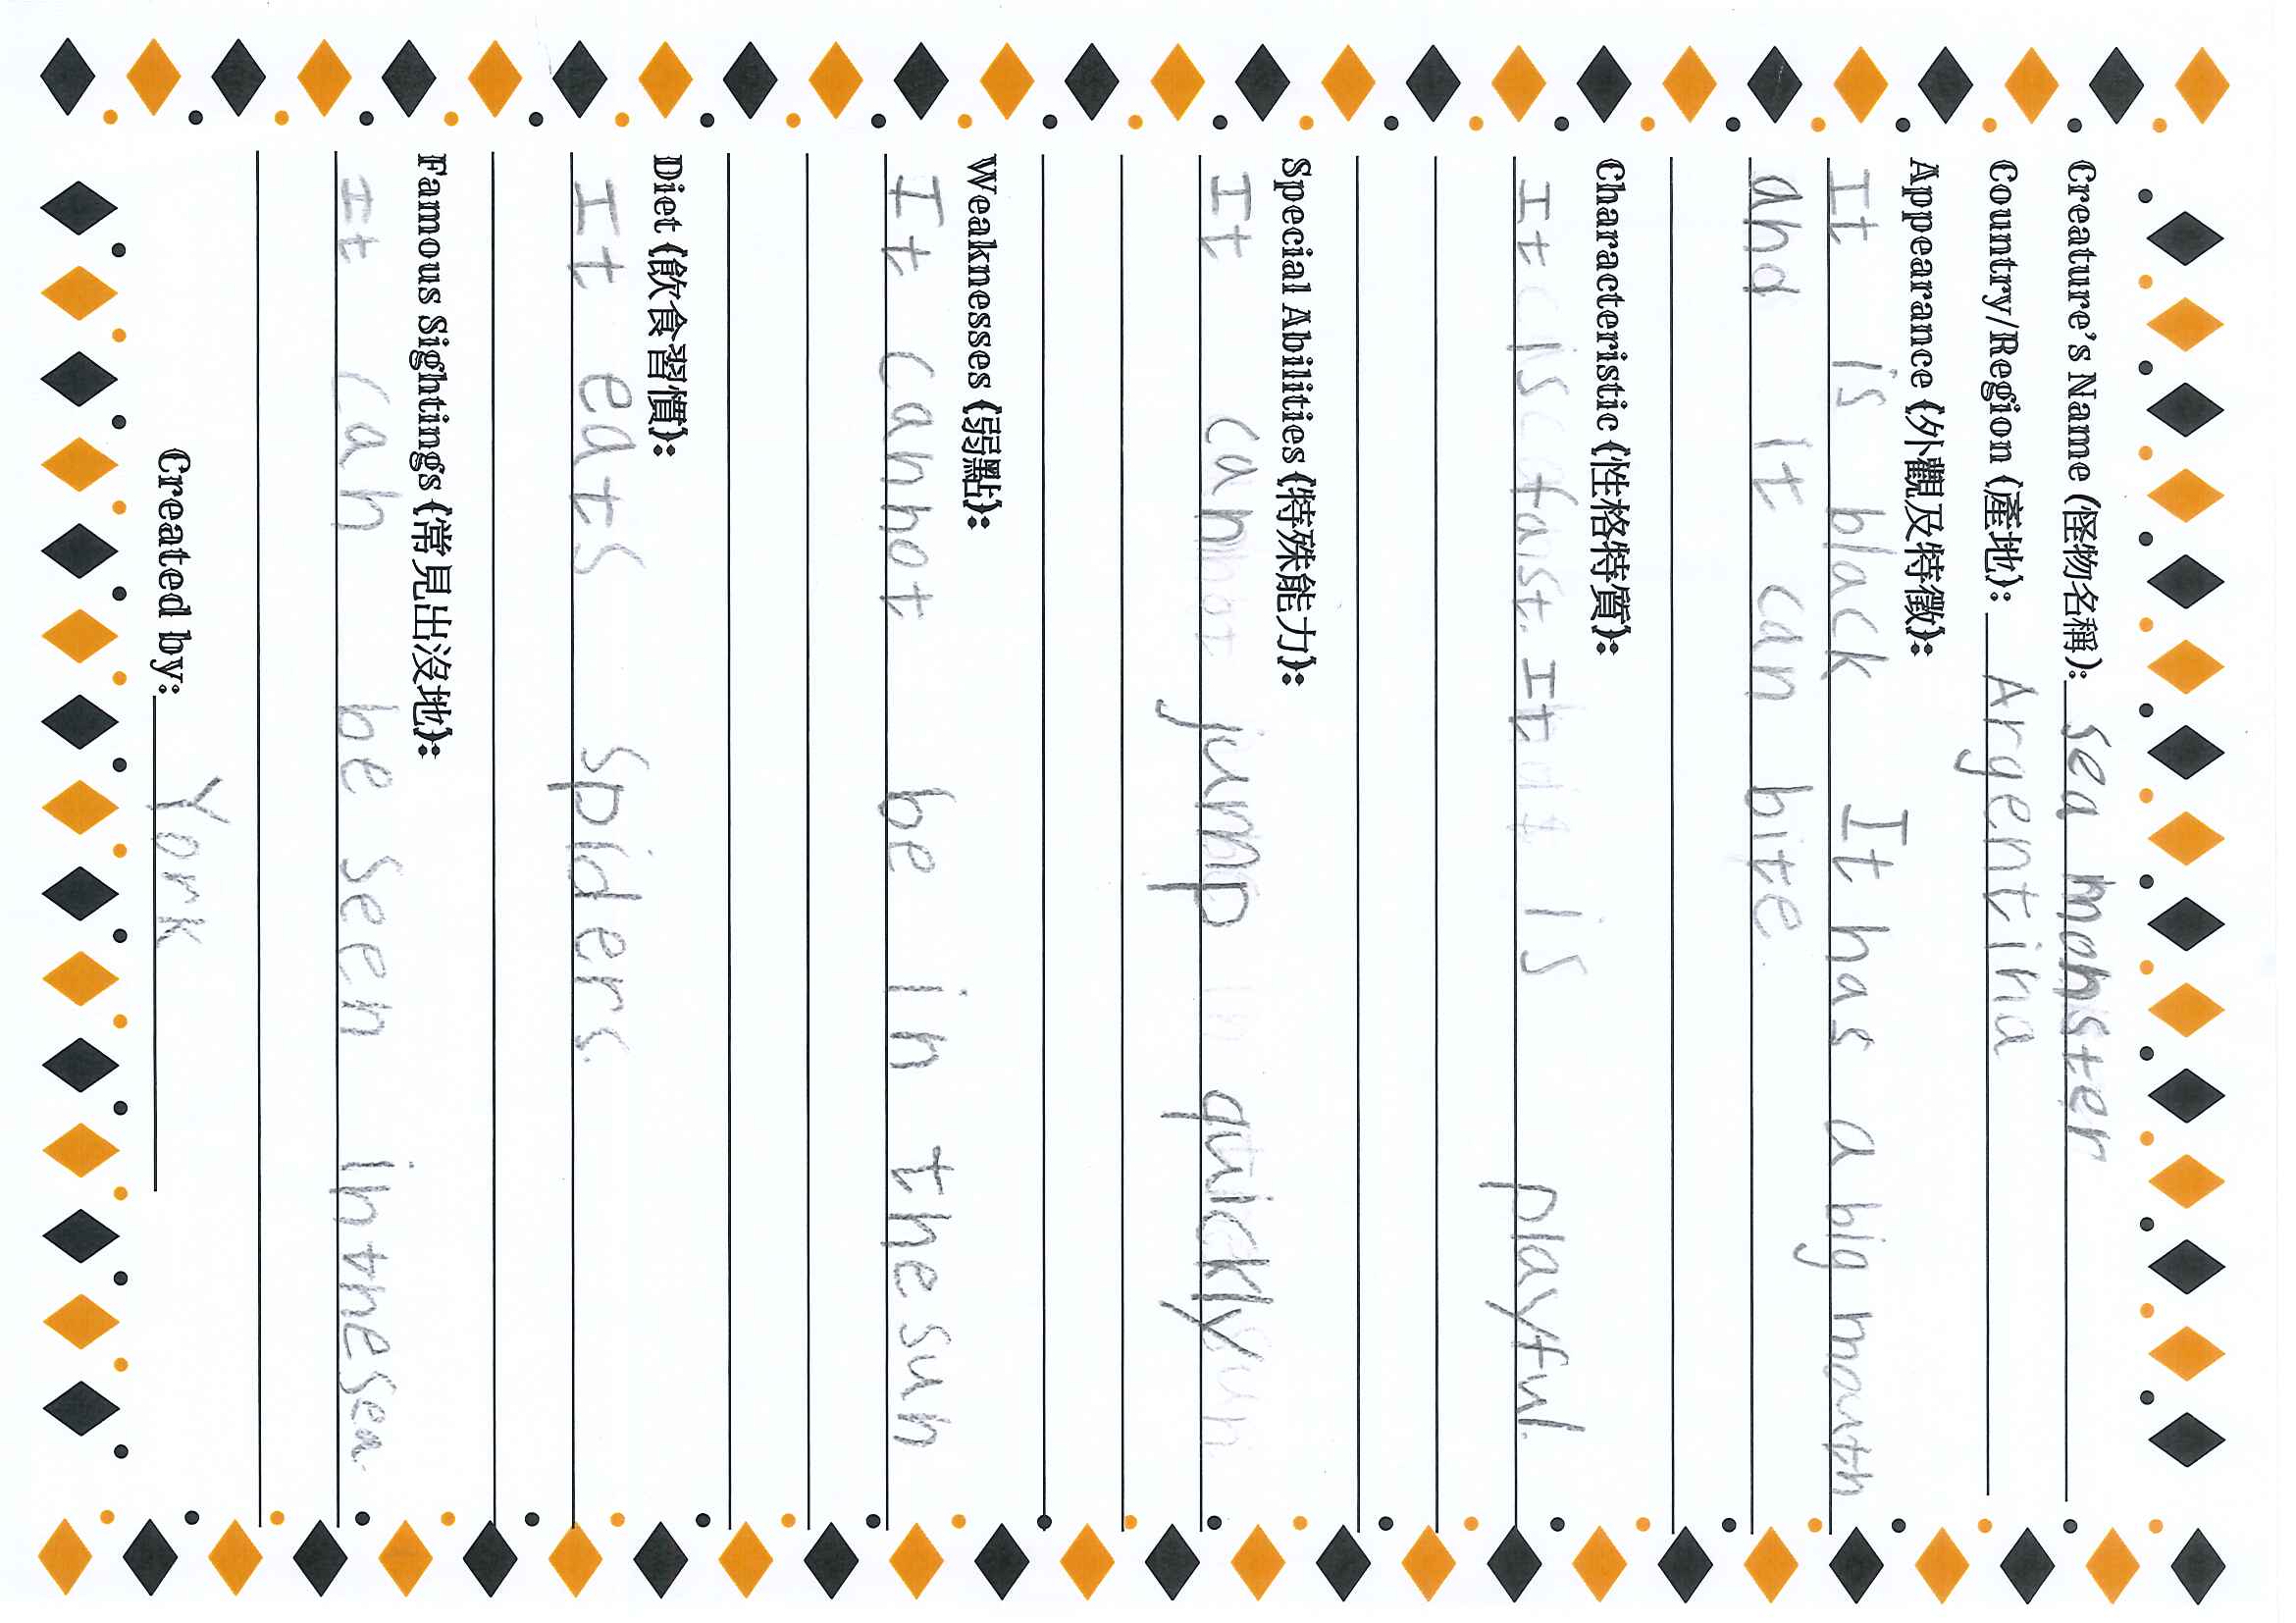 Creature's Name (怪物名稱): sea monster
Country/Region (產地): Argentina
Appearance (外觀及特徵):
It is black It has a big mouth
and It can bite
Characteristic (性格特質):
It is fast. It is playful.
Special Abilities (特殊能力):
It can jump quickly
Weaknesses (弱點):
It cannot be in the sun
Diet (飲食習慣):
It eats spiders.
Famous Sightings (常見出沒地):
It can be seen in the sea.
Created by: York